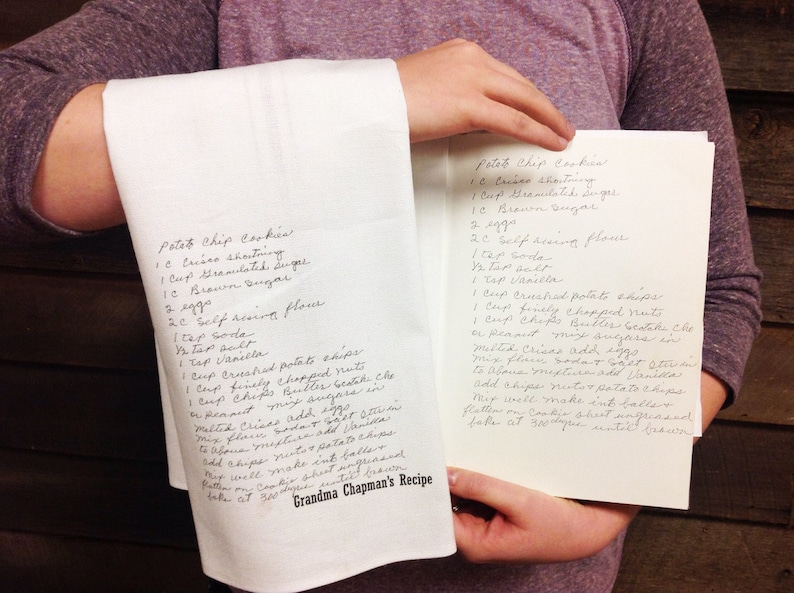 Potato Chip Cookies
1 c Crisco shortning
1 cup Granulated Sugar
1 c Brown Sugar
2 eggs
2 c Self rising flour
1 tsp Soda
1/2 tsp Salt
1 Tsp Vanilla
1 cup crushed potato chips
1 cup finely chopped nuts
1 cup chips Butter Scotch Cho
or Peanut Mix sugars in
melted Crisco add eggs
Mix flour Soda & Salt Stir in
to Above Mixture add Vanilla
add chips Nuts & Potato Chips
Mix Well Make into balls &
flatten on Cookie sheet ungreased
bake at 300 degree until brown
Grandma Chapman's Recipe
Potato Chip Cookies
1 c Crisco shortning
1 cup Granulated Sugar
1 c Brown Sugar
2 eggs
2 c Self rising flour
1 tsp Soda
1/2 tsp Salt
1 Tsp Vanilla
1 cup crushed potato chips
1 cup finely chopped nuts
1 cup chips Butter Scotch Cho
or Peanut Mix sugars in
melted Crisco add eggs
Mix flour Soda & Salt Stir in
to Above Mixture add Vanilla
add chips Nuts & Potato Chips
Mix Well Make into balls &
flatten on Cookie sheet ungreased
bake at 300 degree until brown